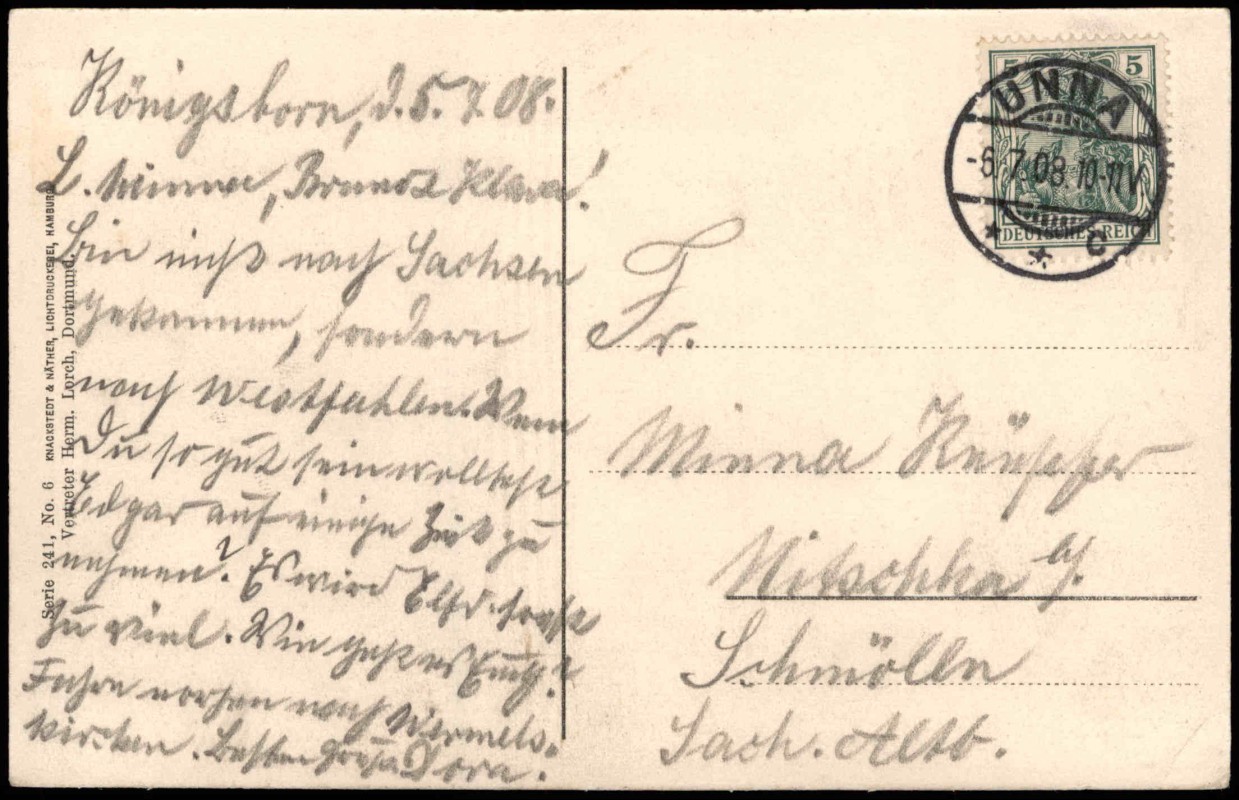 Königsborn, d. 5.7.08.
L. Minna, Bruno & Klara!
Bin nicht nach Sachsen
gekommen, sondern
nach Westfahlen. Wenn
Du so gut sein wolltest
Edgar auf einige Zeit zu
nehmen? Es wird Elfd. sonst
zu viel. Wie geht es Euch?
Fahre vorher nach Wermels-
kirchen. Besten Gruß Dora.
Serie 241, No. 6 KNACKSTEDT & NÄTHER, LICHTDRUCKEREI, HAMBURG
Vertreter Herm. Lorch, Dortmund.
5 5
DEUTSCHES REICH
UNNA
-6.7.08.10-11V
* * c
Fr.
Minna
Nitschka b/.
Schmölln
Sach. Altb.